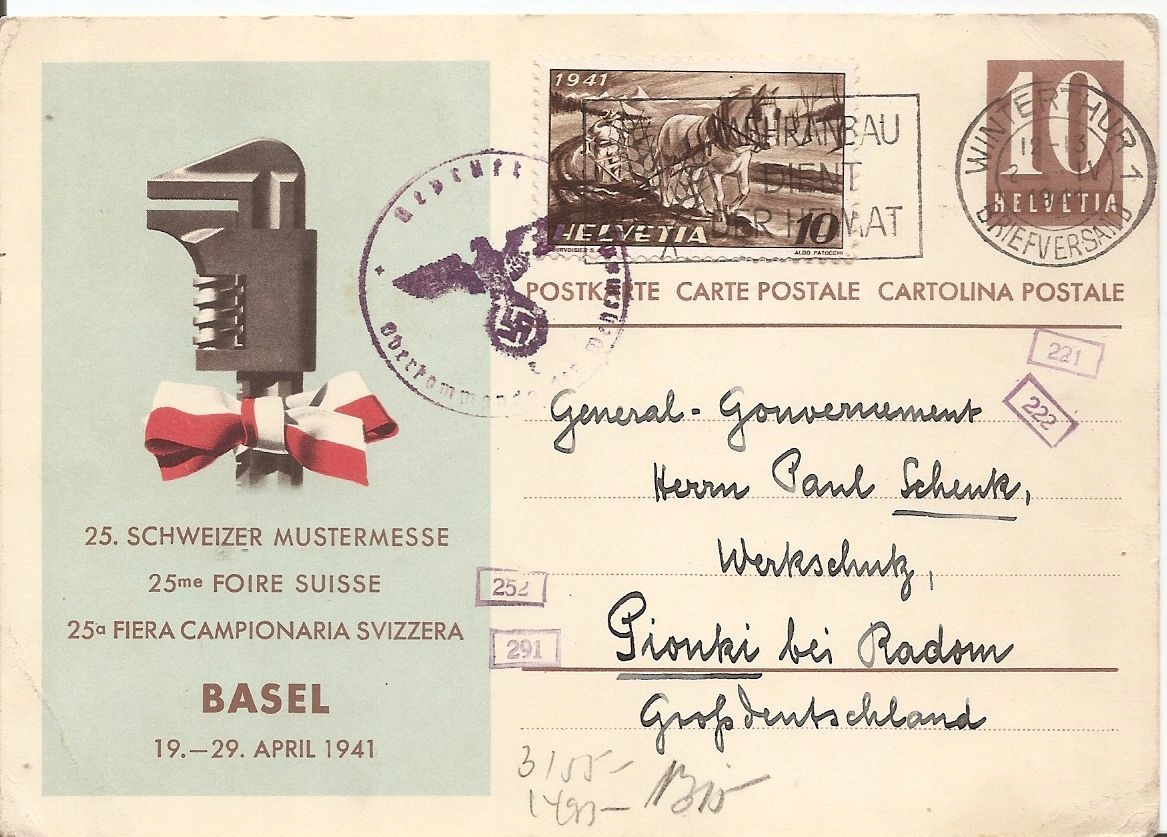 1941
HELVETIA 10
COURVOISIER S.A.
ALDO PATOCCHI
MEHRANBAU
DIENT
DER HEIMAT
10
HELVETIA
WINTERTHUR 1
12-13
IV
1941
BRIEFVERSAND
Geprüft
Oberkommando der Wehrmacht
POSTKARTE CARTE POSTALE CARTOLINA POSTALE
221
222
General-Gouvernement
Herrn Paul Schenk,
Werkschutz,
Pionki bei Radom
Großdeutschland
252
291
25. SCHWEIZER MUSTERMESSE
25me FOIRE SUISSE
25a FIERA CAMPIONARIA SVIZZERA
BASEL
19.–29. APRIL 1941